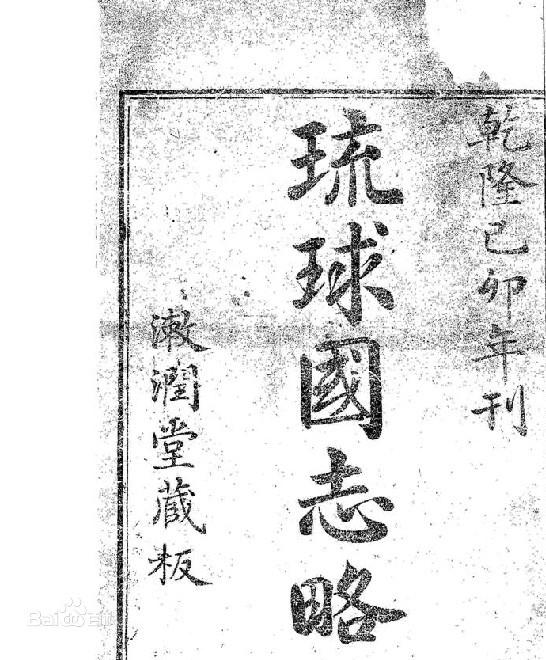 乾隆己卯年刊
琉球國志略
漱潤堂藏板
Bai